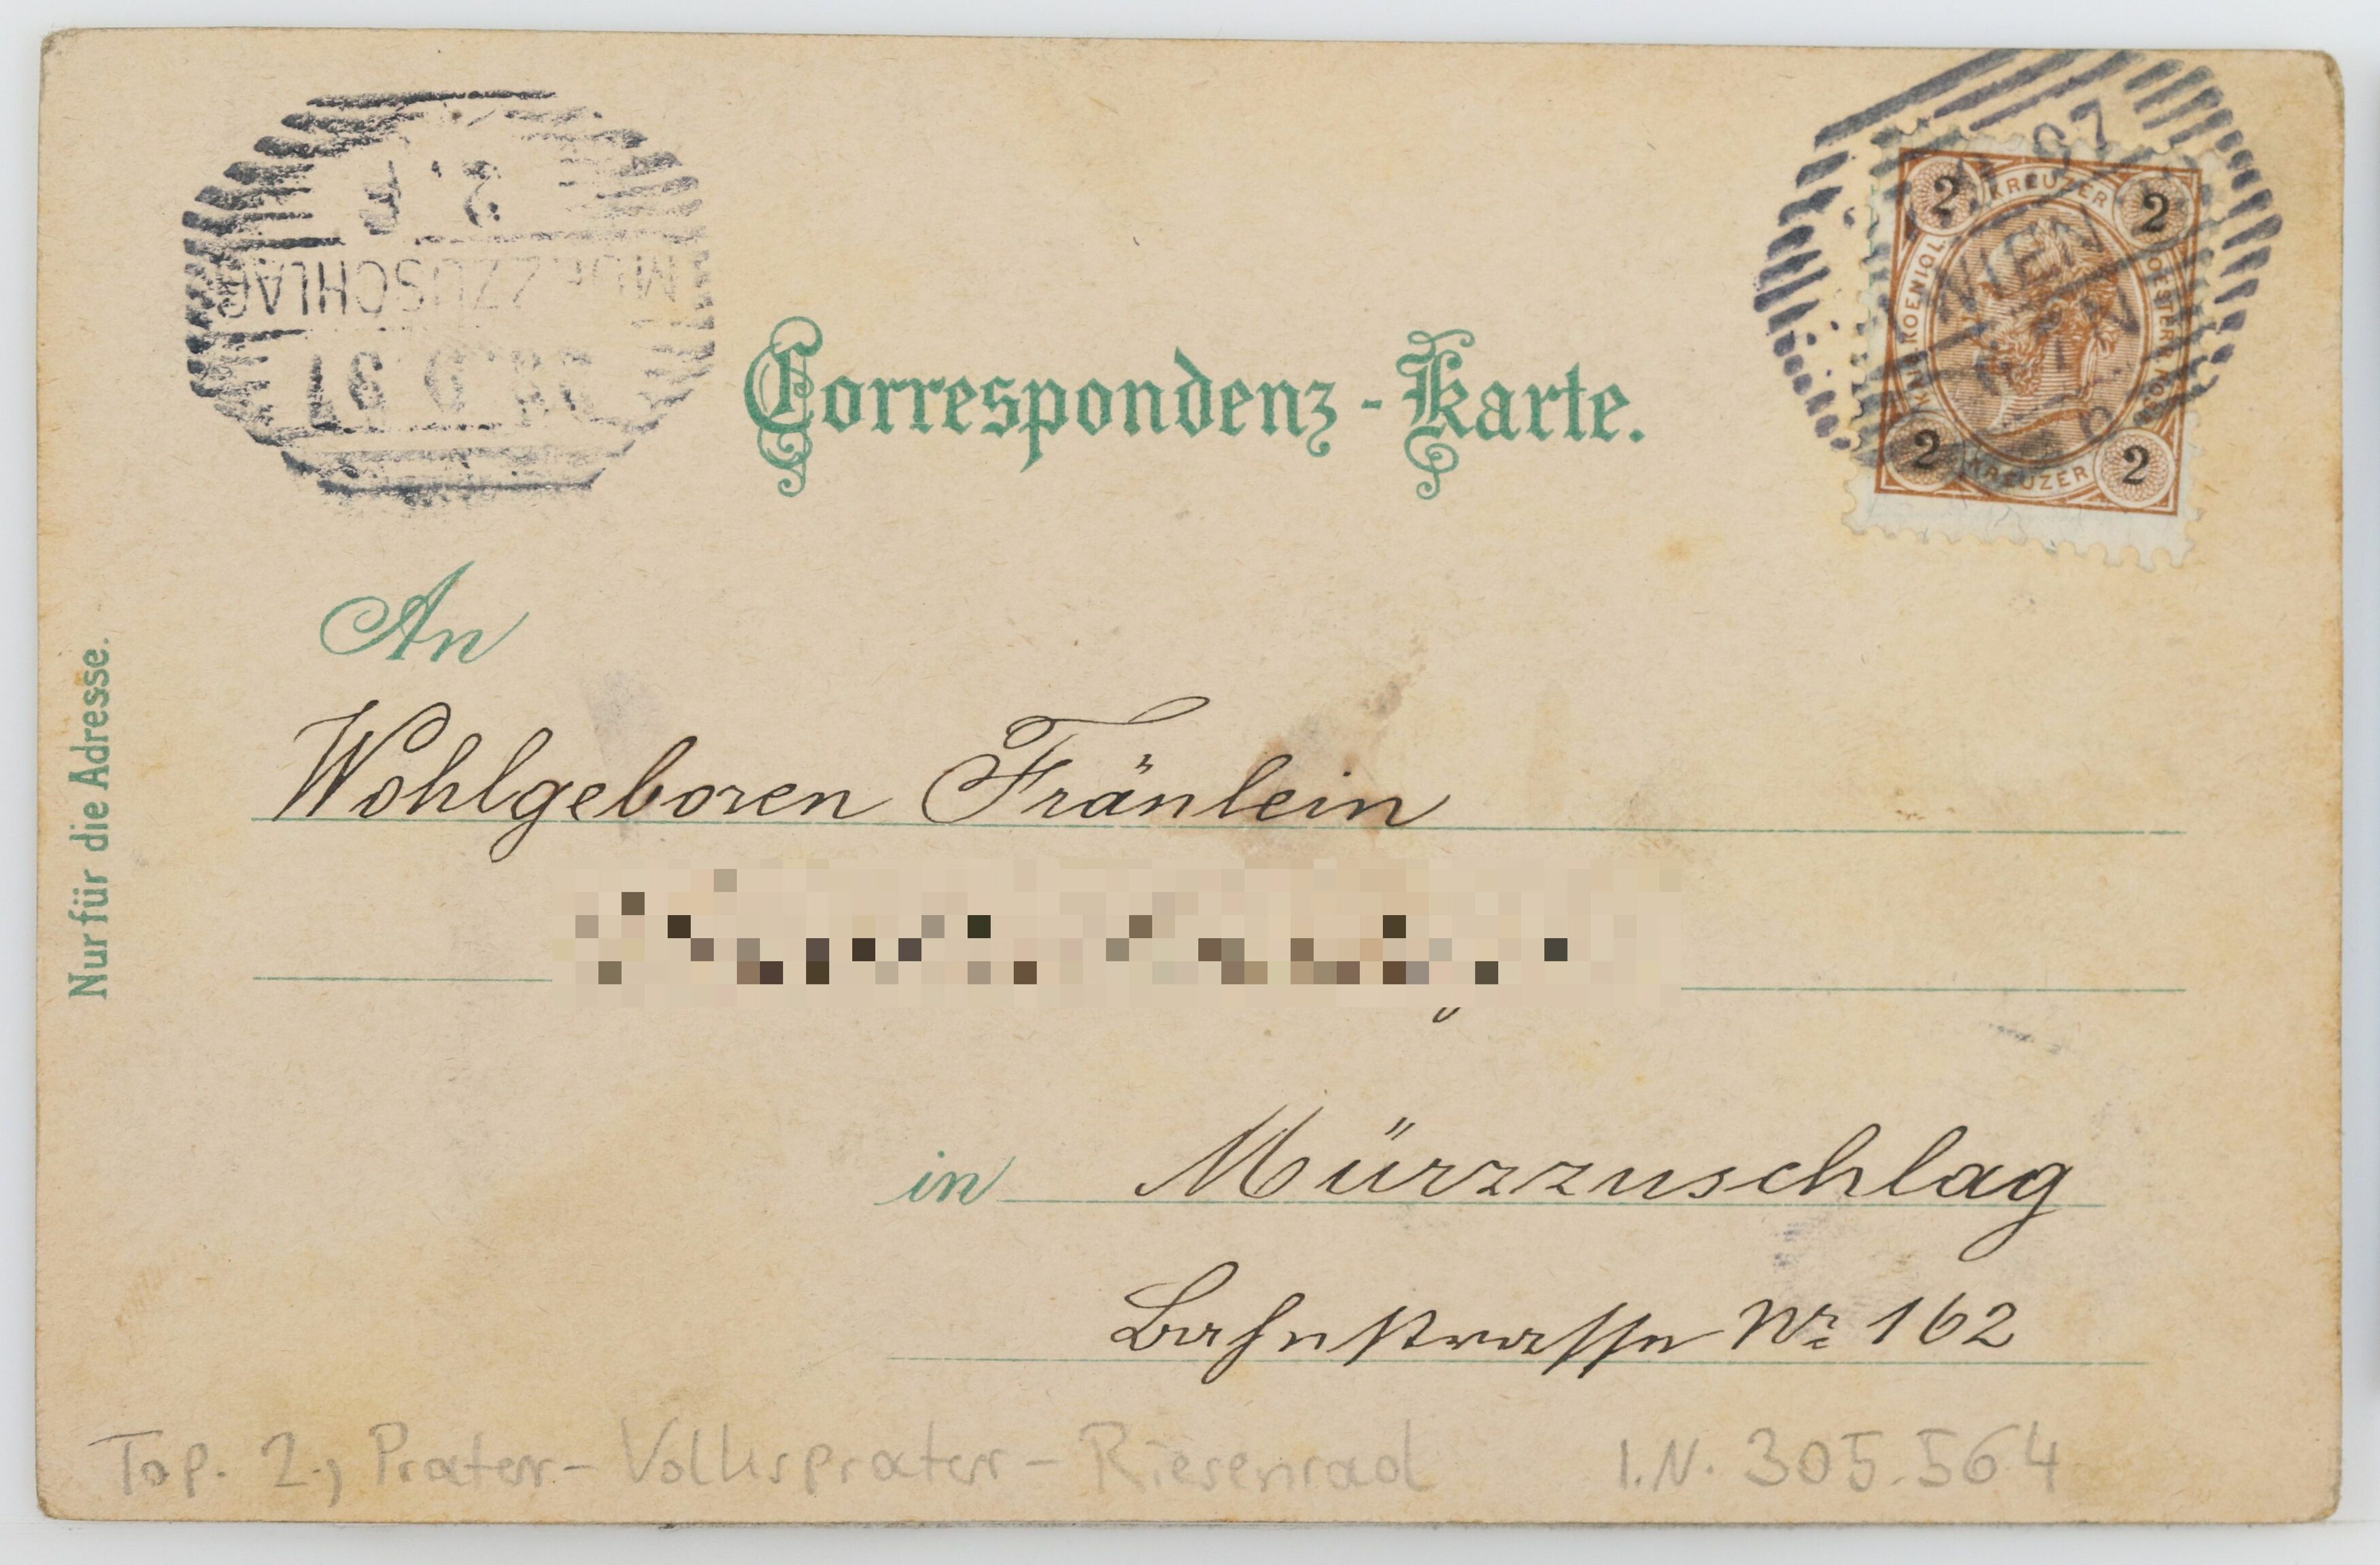 2. F
MÜRZZUSCHLAG
97
97
WIEN
2 KREUZER 2
KAIS. KOENIGL. OESTERR. POST
2 KREUZER 2
Correspondenz-Karte.
An
Wohlgeboren Fränlein
in Mürzzuschlag
Bahnstrasse Nr 162
Nur für die Adresse.
Top. 2., Prater - Volksprater - Riesenrad I.N. 305.564